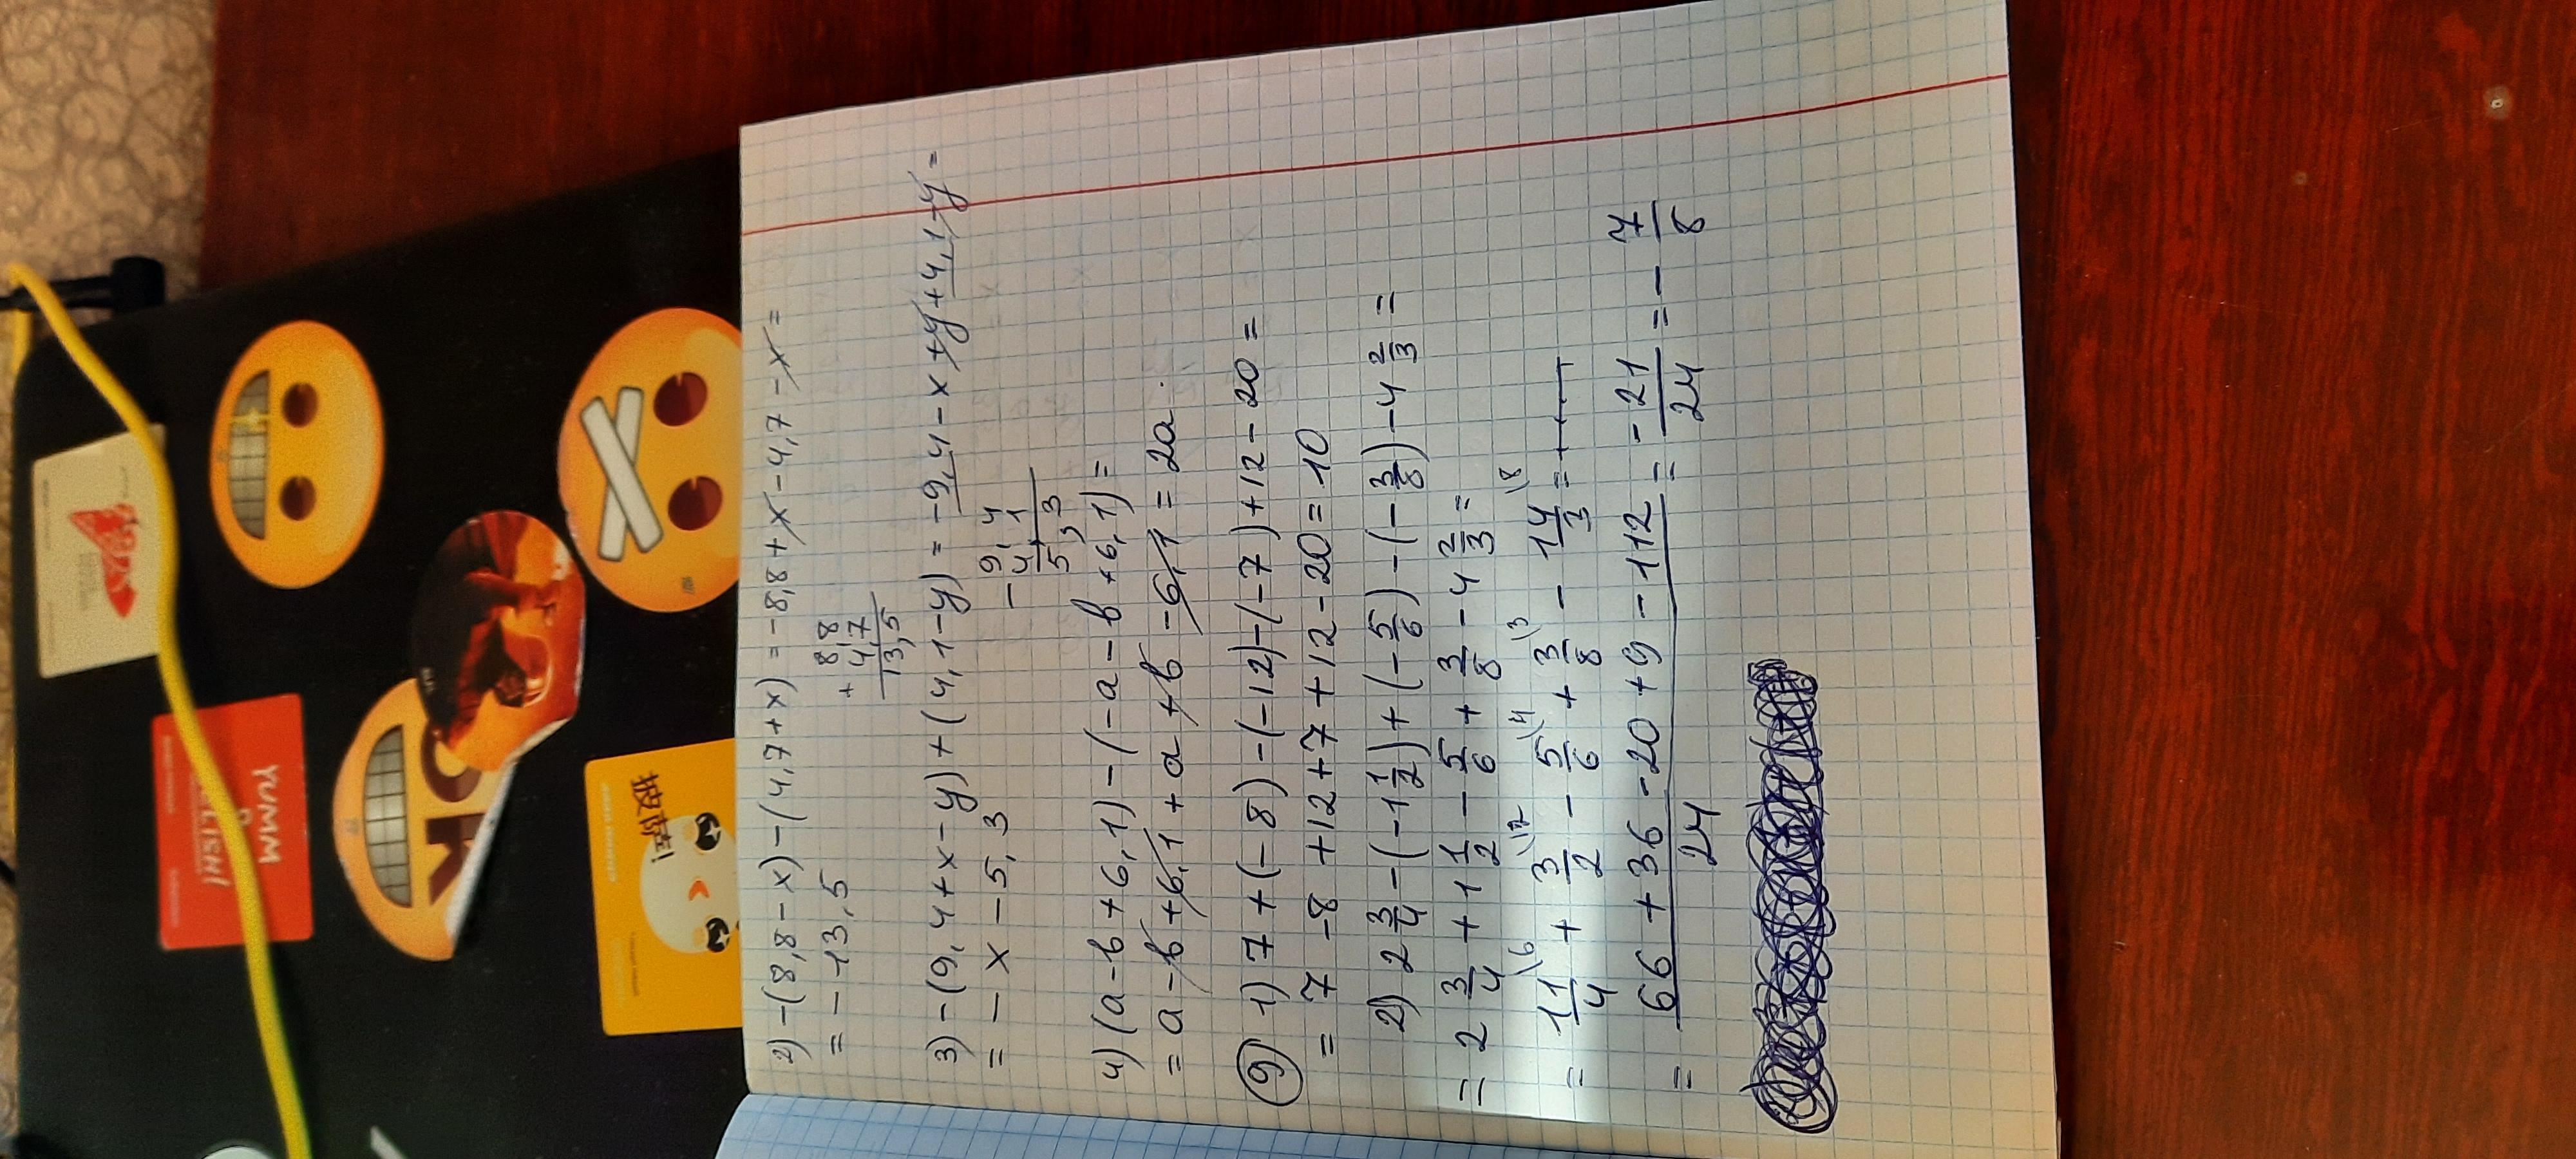 2) -(8,8-x)-(4,7+x)=-8,8+x-4,7-x=
=-13,5
+ 8,8
4,7
13,5
3) -(9,4+x-y)+(4,1-y)=-9,4-x+y+4,1-y=
=-x-5,3
- 9,4
4,1
5,3
4) (a-b+6,1)-(-a-b+6,1)=
=a-b+6,1+a+b-6,1=2a.
9) 1) 7+(-8)-(-12)-(-7)+12-20=
=7-8+12+7+12-20=10
2) 2 3/4-(-1 1/2)+(-5/6)-(-3/8)-4 2/3=
=2 3/4+1 1/2-5/6+3/8-4 2/3=
=11/4\6+3/2\12-5/6\4+3/8\3-14/3\8=
=66+36-20+9-112/24=-21/24=-7/8
YUMM
Y
LISH!
OK
披荐!